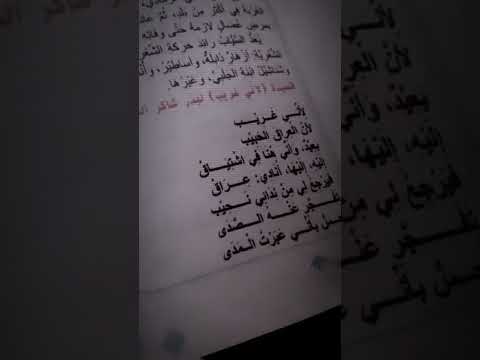 الغربة في أكثر من بلد، ثم
بمرض عضال لازمه حتى وفاته
يعد السياب رائد حركة الشعر
الشعرية: أزهار ذابلة، وأساطير،
وشناشيل ابنة الجلبي، وغيرها.
(لأني غريب) شاكر
لأنّي غَريب
لأنّ العراق الحبيب
بعيد، وأنّي هنا في اشتياق
إليه، إليها، أنادي: عراق
فيرجع لي من ندائي نحيب
تفجّر عنه الصّدى
أحسّ بأنّي عبرت المدى